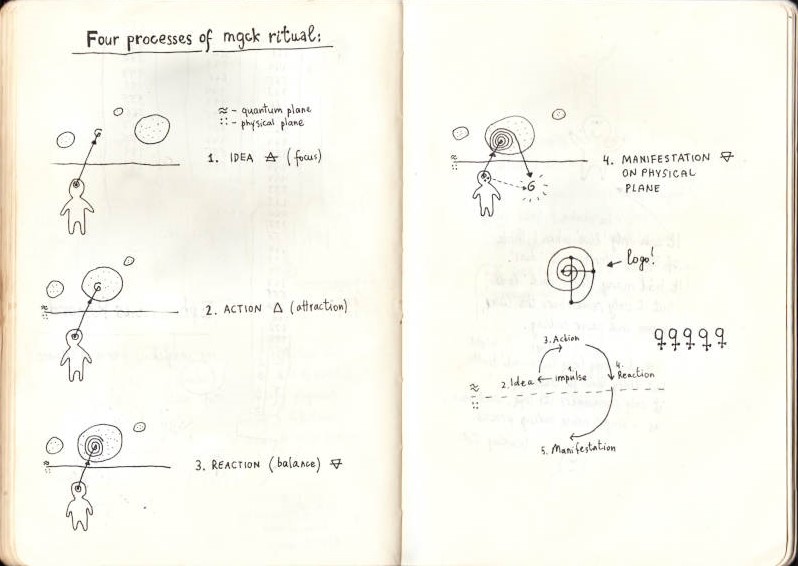 Four processes of mgck ritual:
≈ - quantum plane
:: - physical plane
1. IDEA 🜁 (focus)
2. ACTION △ (attraction)
3. REACTION (balance) 🜃
≈
::
≈
::
≈
::
4. MANIFESTATION 🜃
ON PHYSICAL
PLANE
logo!
3. Action
4.
Reaction
1.
2. Idea ← impulse
≈
::
5. Manifestation